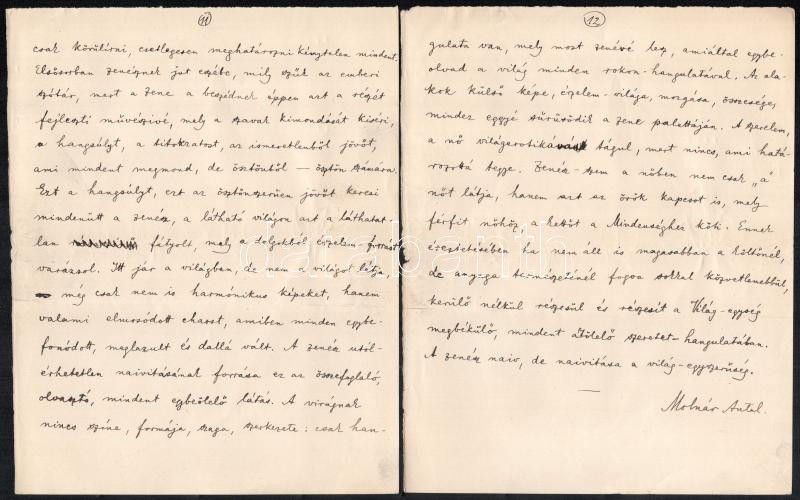 11
csak körülírni, esetlegesen meghatározni kénytelen mindent.
Elsősorban zenésznek jut eszébe, mily szűk az emberi
szótár, mert a zene a beszédnek éppen azt a részét
fejleszti művészivé, mely a szavak kimondását kíséri,
a hangsúlyt, a titokzatost, az ismeretlenből jövőt,
ami mindent megmond, de ösztönből — ösztön számára.
Ezt a hangsúlyt, ezt az ösztönszerűen jövőt keresi
mindenütt a zenész, a látható világon azt a láthatat
lan fátyolt, mely a dolgokból érzelem-forrást
varázsol. Itt jár a világban, de nem a világot látja,
még csak nem is harmónikus képeket, hanem
valami elmosódott chaost, amiben minden egybe-
fonódott, meglazult és dallá vált. A zenész utól-
érhetetlen naivitásának forrása ez az összefoglaló,
olvasztó, mindent egybeölelő látás. A virágnak
nincs színe, formája, szaga, szerkezete: csak han-
12
gulata van, mely most zenévé lesz, amiáltal egybe-
olvad a világ minden rokon-hangulatával. Az ala-
kok külső képe, érzelem-világa, mozgása, összessége,
mindez eggyé sűrűsödik a zene palettáján. A szerelem,
a nő világerotikává tágul, mert nincs, ami hatá-
rozottá tegye. Zenész-szem a nőben nem csak „a"
nőt látja, hanem azt az örök kapcsot is, mely
férfit nőhöz, a kettőt a Mindenséghez köti. Ennek
éreztetésében ha nem áll is magasabban a költőnél,
de anyaga természeténél fogva sokkal közvetlenebbül,
kerülő nélkül részesül és részesít a Világ-egység
megbékülő, mindent átölelő szeretet-hangulatában.
A zenész naiv, de naivitása a világ-egyszerűség.
Molnár Antal.